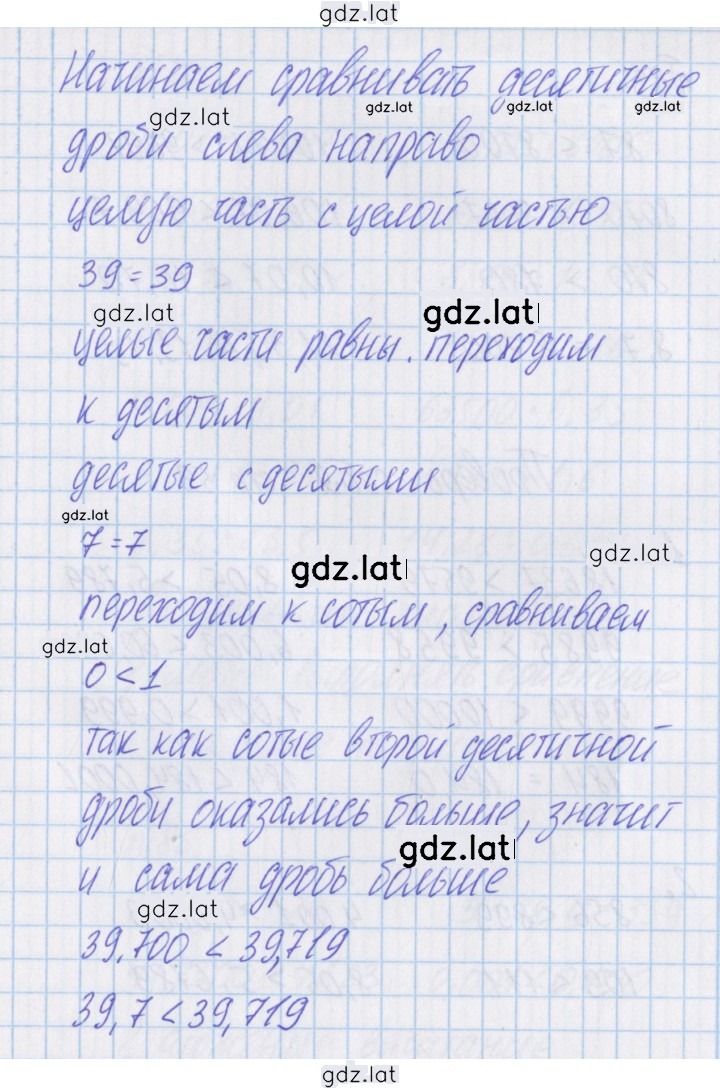 gdz.lat
Начинаем сравнивать десятичные
gdz.lat gdz.lat gdz.lat gdz.lat
дроби слева направо
целую часть с целой частью
39 = 39
gdz.lat gdz.lat
целые части равны. переходим
к десятым
десятые с десятыми
gdz.lat
7 = 7
gdz.lat gdz.lat
переходим к сотым, сравниваем
gdz.lat
0 < 1
так как сотые второй десятичной
дроби оказались больше, значит
gdz.lat
и сама дробь больше
gdz.lat
39,700 < 39,719
39,7 < 39,719
gdz.lat